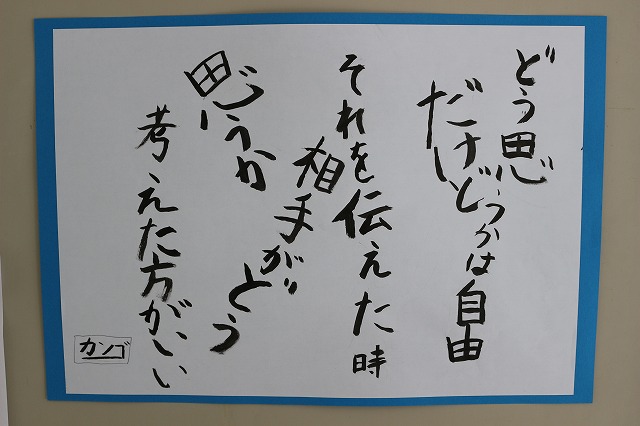 どう思うかは自由
だけど
それを伝えた時
相手がどう
思うか
考えた方がいい
カンゴ